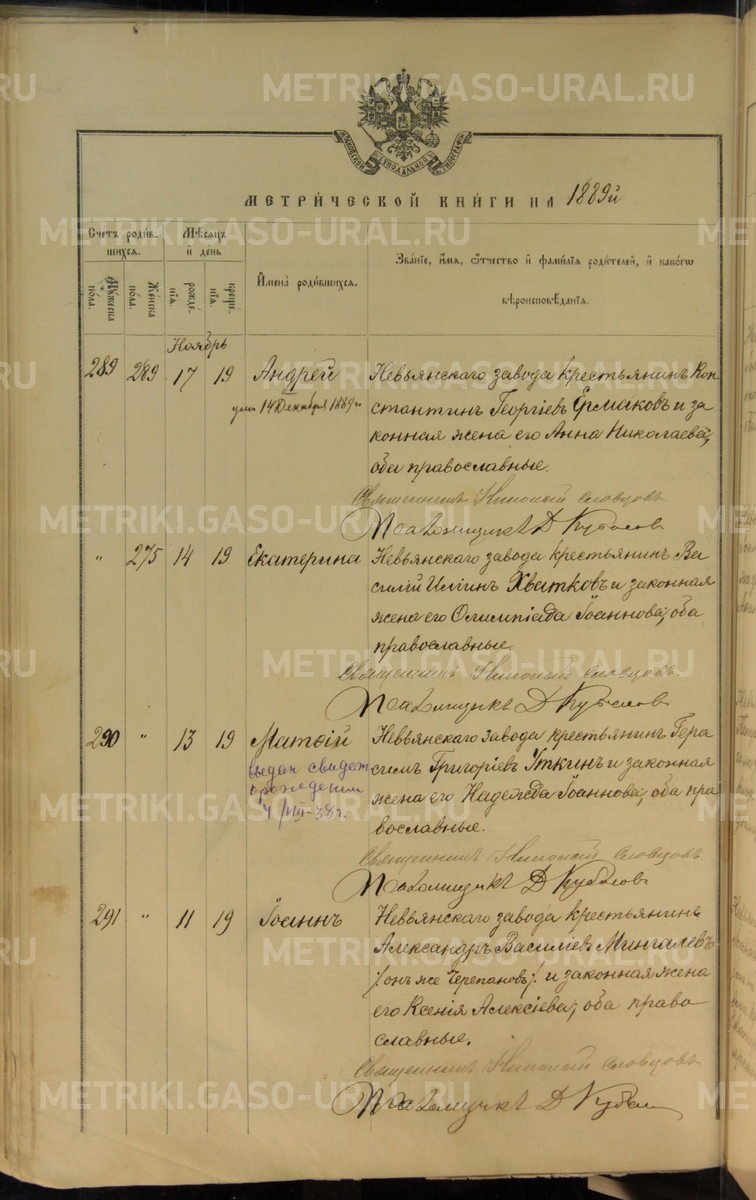 METRIKI.GASO-URAL.RU
МОСКОВСКОЙ СѴНОДАЛЬНОЙ ТИПОГРАФІИ
МЕТРИ́ЧЕСКОЙ КНИ́ГИ НА 1889й
Счетъ роди́вшихся.
Мѣсяцъ й день
Имена̀ роди́вшихся.
Зва́нїе, и́мя, ѻ҆́тчество и҆ фами́лїя роди́телей, и҆ како́гѡ вѣроисповѣ́данїя.
Мꙋ́жеска по́ла.
Же́нска по́ла.
рожде́нїѧ.
креще́нїѧ.
Ноябрь
289 289 17 19 Андрей Невьянскаго завода крестьянинъ Кон
ум. 14 Декабря 1889 г. стантинъ Георгіевъ Ермаковъ и за
конная жена его Анна Николаева,
оба православные.
Священникъ Николай Словцовъ.
Псаломщикъ Д Кубасов
" 275 14 19 Екатерина Невьянскаго завода крестьянинъ Ва
силій Илiинъ Хватковъ и законная
жена его Олимпіада Іоаннова, оба
православные.
Священникъ Николай Словцовъ.
Псаломщикъ Д Кубасов
290 " 13 19 Матѳій Невьянскаго завода крестьянинъ Гера
выдан свидет. симъ Григоріевъ Уткинъ и законная
о рождении жена его Надежда Іоаннова, оба пра
4/VIII-38 г. вославные.
Священникъ Николай Словцовъ
Псаломщикъ Д Кубасов
291 " 11 19 Іоаннъ Невьянскаго завода крестьянинъ
Александръ Василіевъ Мингалевъ
/онъ же Черепановъ/. и законная жена
его Ксенія Алексіева, оба право
славные.
Священникъ Николай Словцовъ.
Псаломщикъ Д Кубас